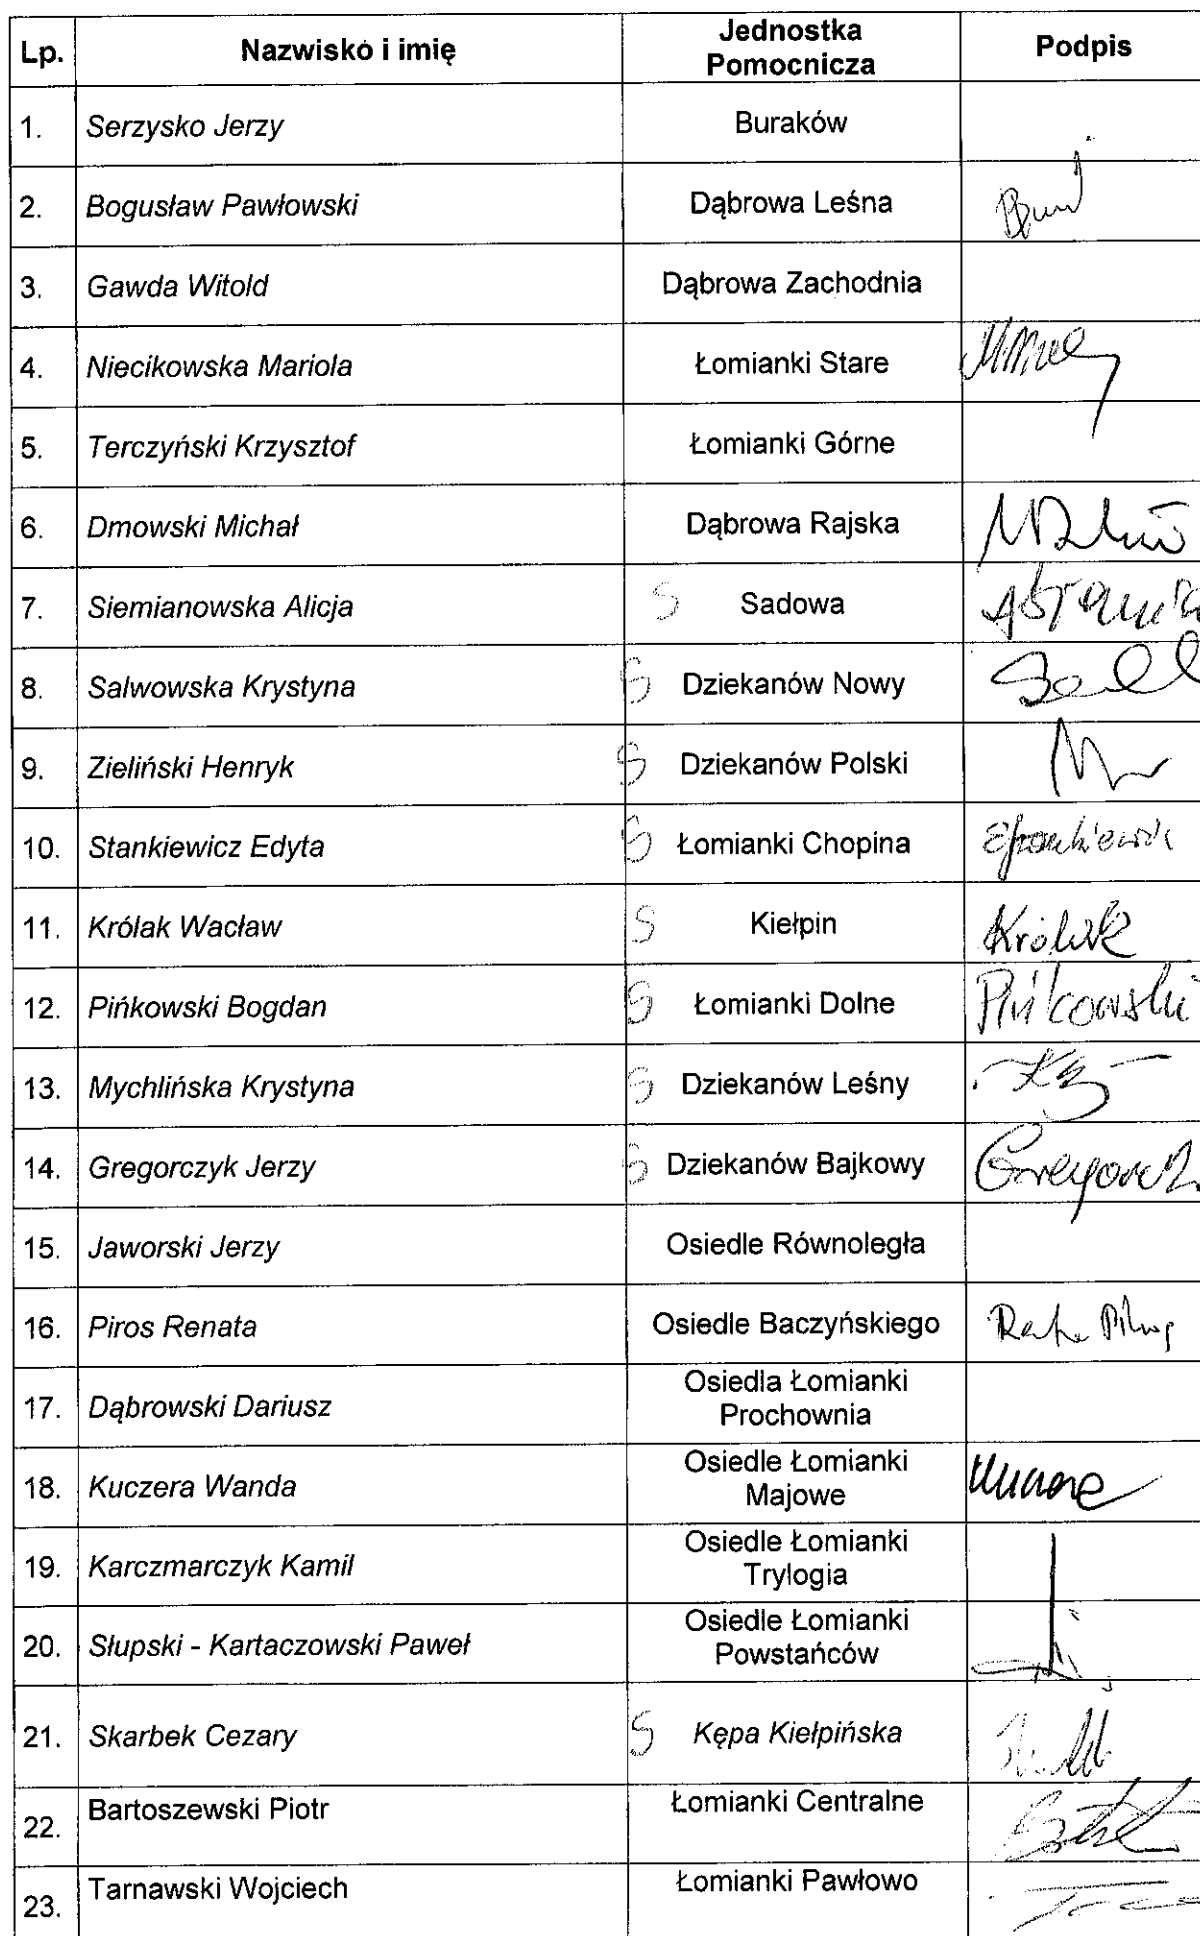 Lp. Nazwisko i imię Jednostka Pomocnicza Podpis
1. Serzysko Jerzy Buraków
2. Bogusław Pawłowski Dąbrowa Leśna
3. Gawda Witold Dąbrowa Zachodnia
4. Niecikowska Mariola Łomianki Stare
5. Terczyński Krzysztof Łomianki Górne
6. Dmowski Michał Dąbrowa Rajska
7. Siemianowska Alicja S Sadowa
8. Salwowska Krystyna S Dziekanów Nowy
9. Zieliński Henryk S Dziekanów Polski
10. Stankiewicz Edyta S Łomianki Chopina
11. Królak Wacław S Kiełpin Królak
12. Pińkowski Bogdan S Łomianki Dolne Pińkowski
13. Mychlińska Krystyna S Dziekanów Leśny
14. Gregorczyk Jerzy S Dziekanów Bajkowy
15. Jaworski Jerzy Osiedle Równoległa
16. Piros Renata Osiedle Baczyńskiego
17. Dąbrowski Dariusz Osiedla Łomianki Prochownia
18. Kuczera Wanda Osiedle Łomianki Majowe
19. Karczmarczyk Kamil Osiedle Łomianki Trylogia
20. Słupski - Kartaczowski Paweł Osiedle Łomianki Powstańców
21. Skarbek Cezary S Kępa Kiełpińska
22. Bartoszewski Piotr Łomianki Centralne
23. Tarnawski Wojciech Łomianki Pawłowo